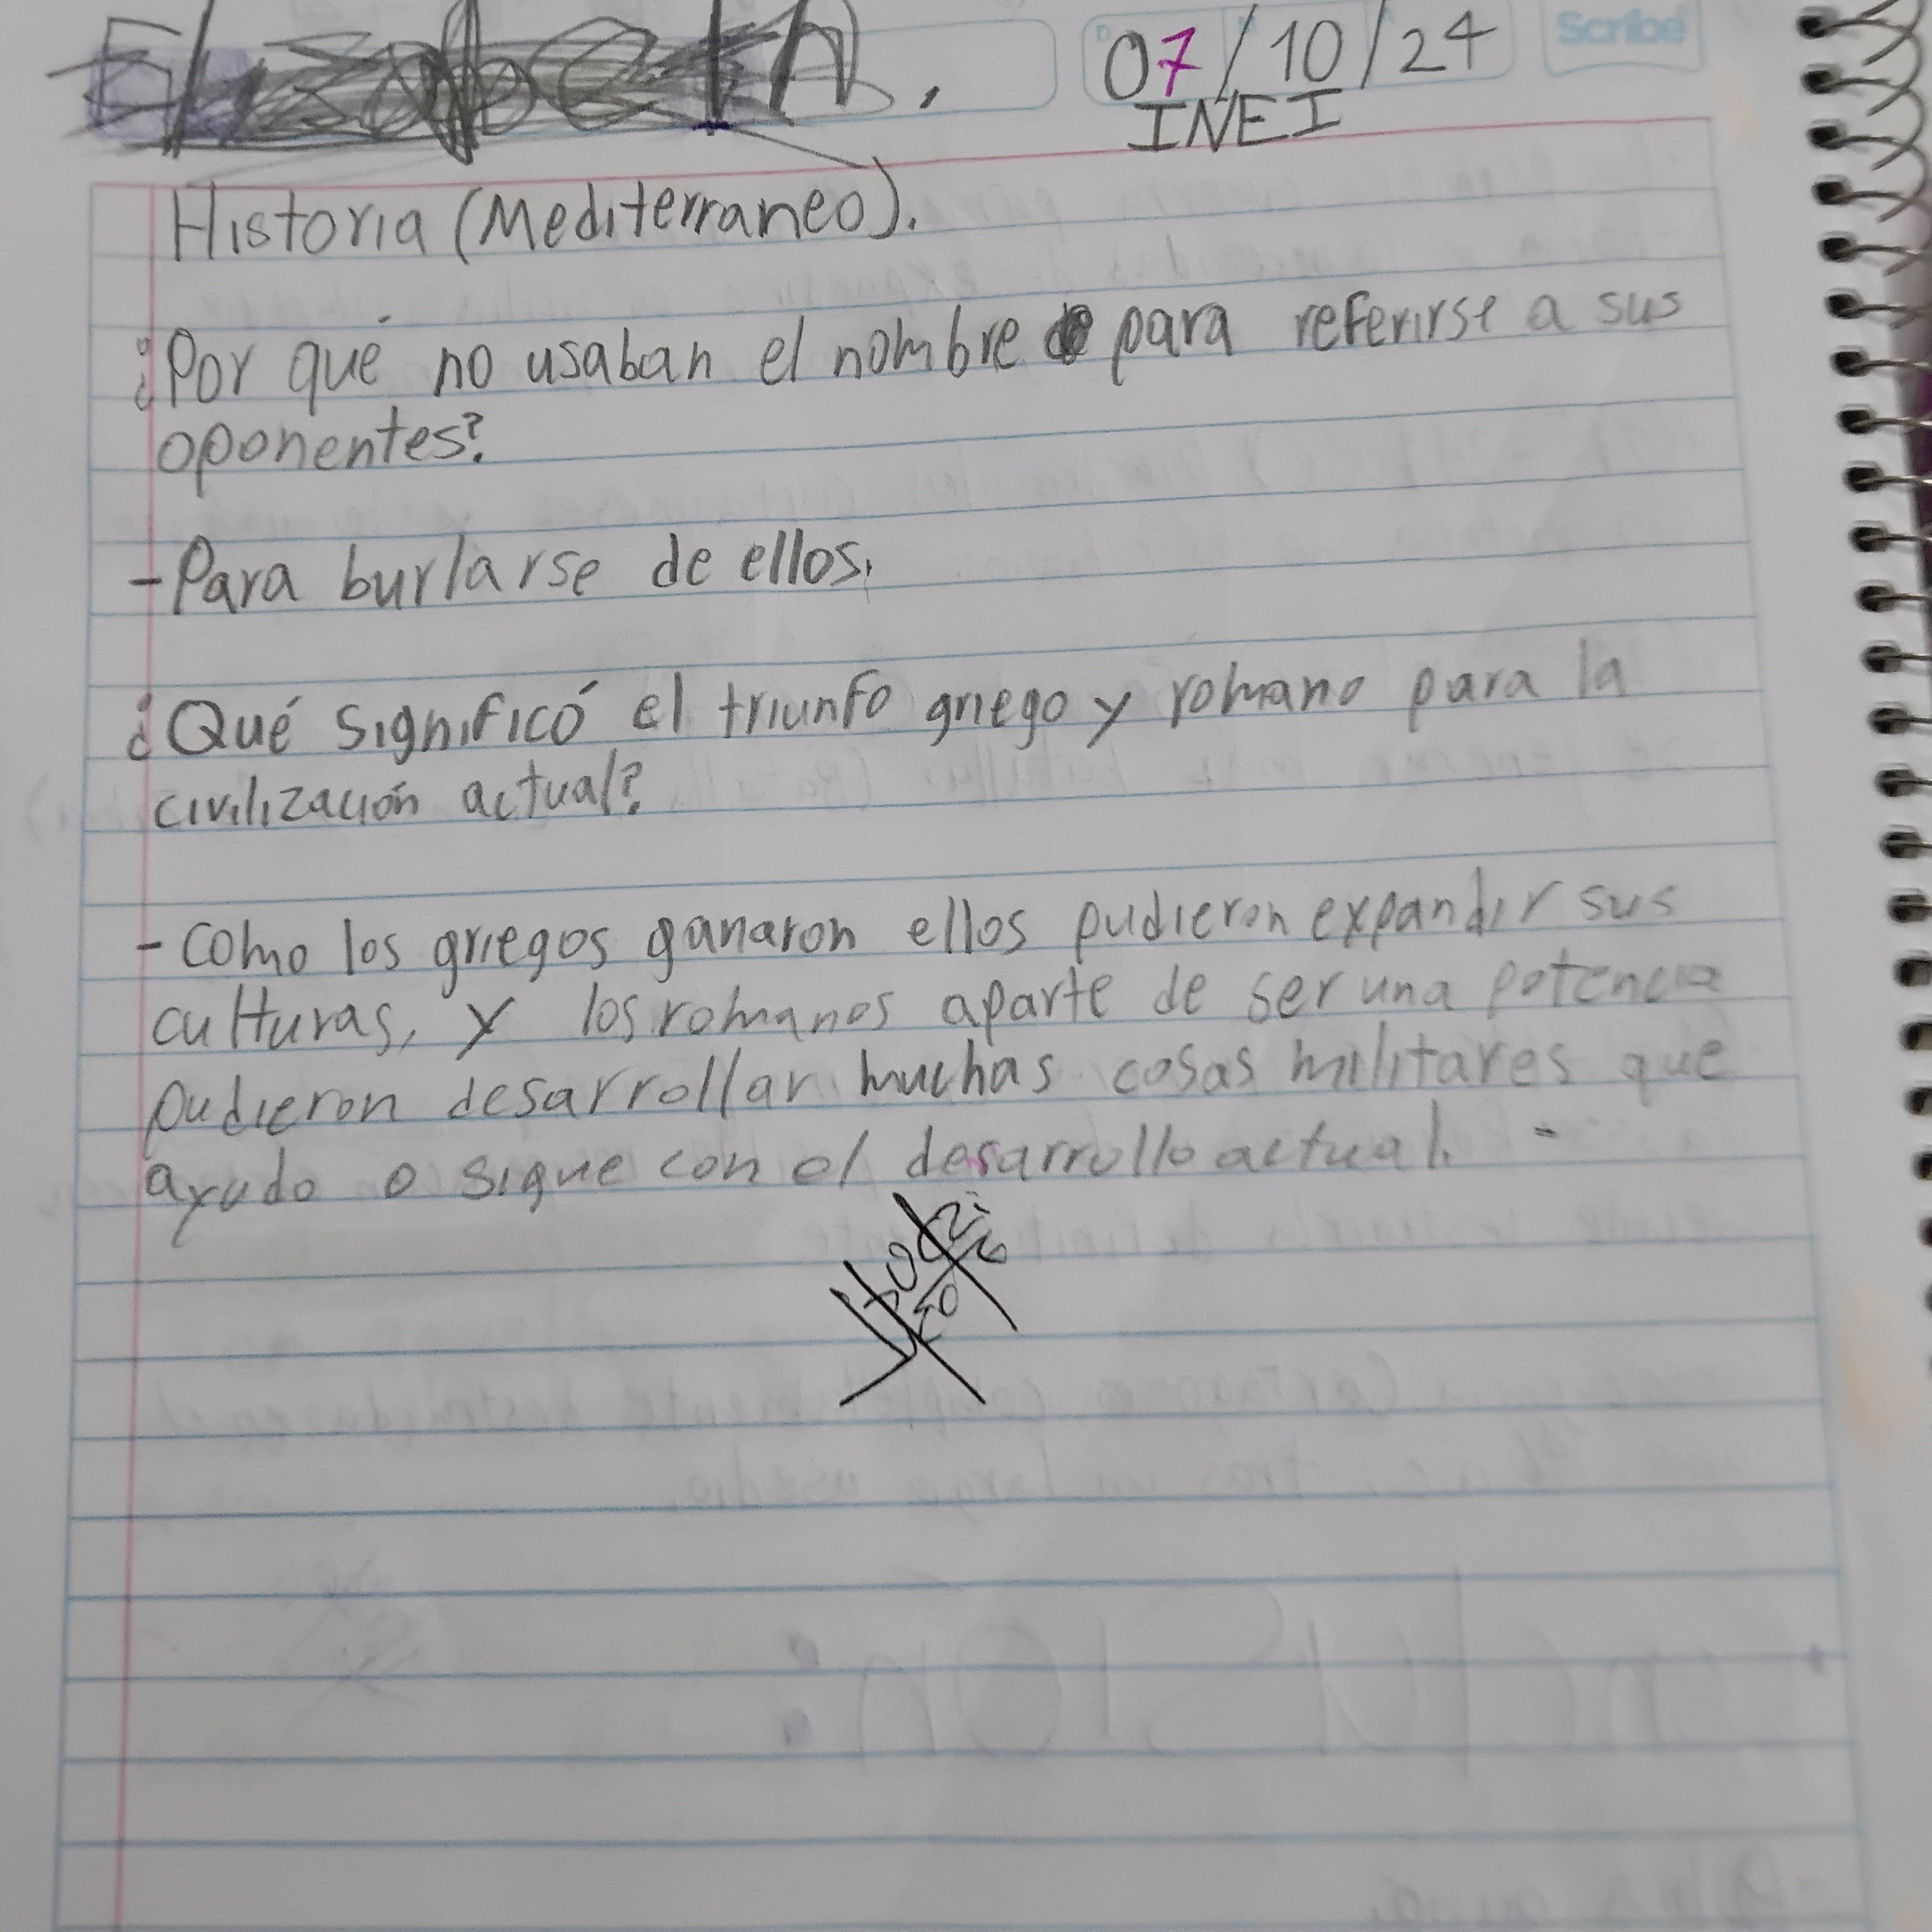 07/10/24
Scribe
INEI
Historia (Mediterraneo).
¿Por qué no usaban el nombre para referirse a sus
oponentes?
-Para burlarse de ellos.
¿Qué significó el triunfo griego y romano para la
civilización actual?
-como los griegos ganaron ellos pudieron expandir sus
culturas, y los romanos aparte de ser una potencia
pudieron desarrollar muchas cosas militares que
ayudo o sigue con el desarrollo actual. -